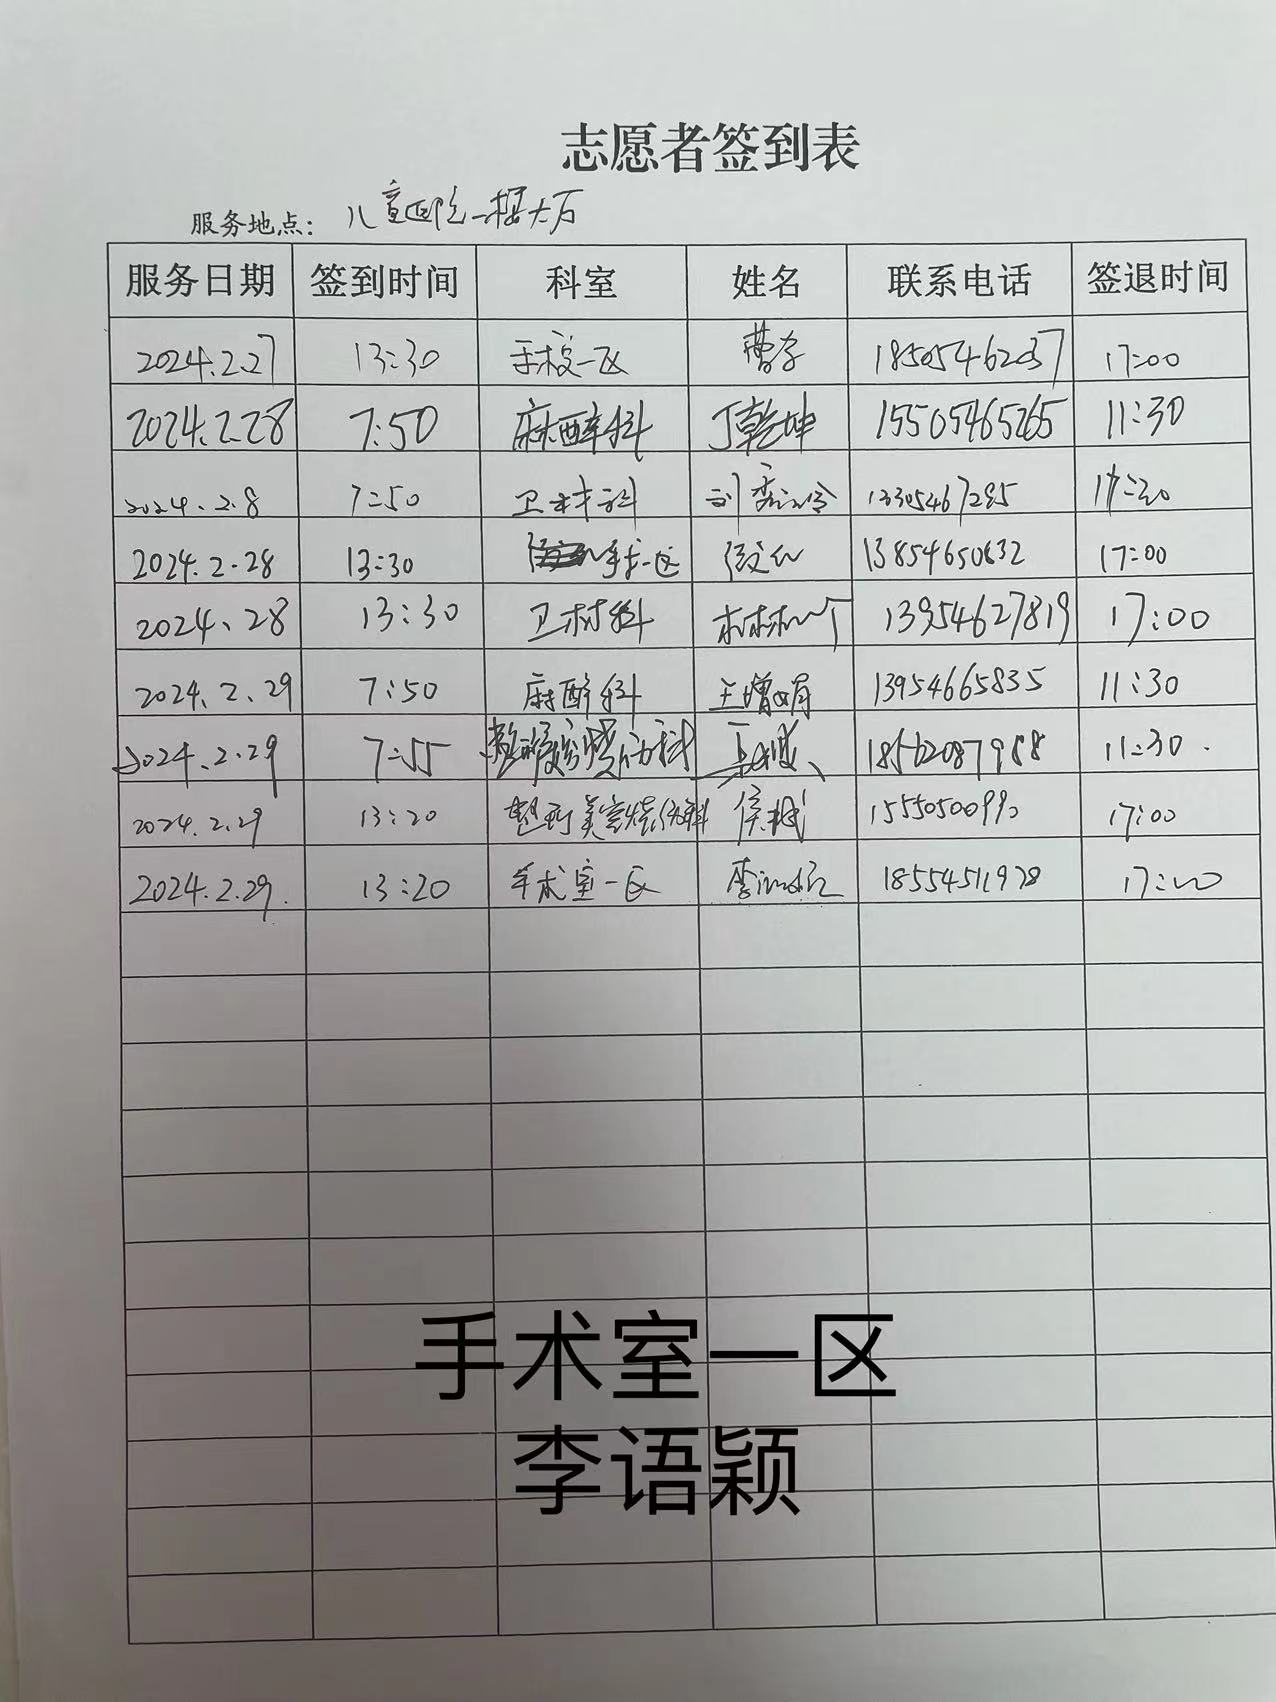 志愿者签到表
服务地点： 儿童医院一楼大厅
服务日期 签到时间 科室 姓名 联系电话 签退时间
2024.2.27 13:30 一区 曹 18505462037 17:00
2024.2.28 7:50 麻醉科 丁乾坤 15505465265 11:30
2024.2.8 7:50 卫材科 刘 13305467285
2024.2.28 13:30 手术一区 17:00
2024、28 13:30 卫材科 13954627819 17:00
2024.2.29 7:50 麻醉科 王增娟 13954665835 11:30
2024.2.29 7:55 11:30.
2024.2.29 13:20 侯 17:00
2024.2.29. 13:20 手术室一区 李语颖 18554511978 17:00
手术室一区
李语颖